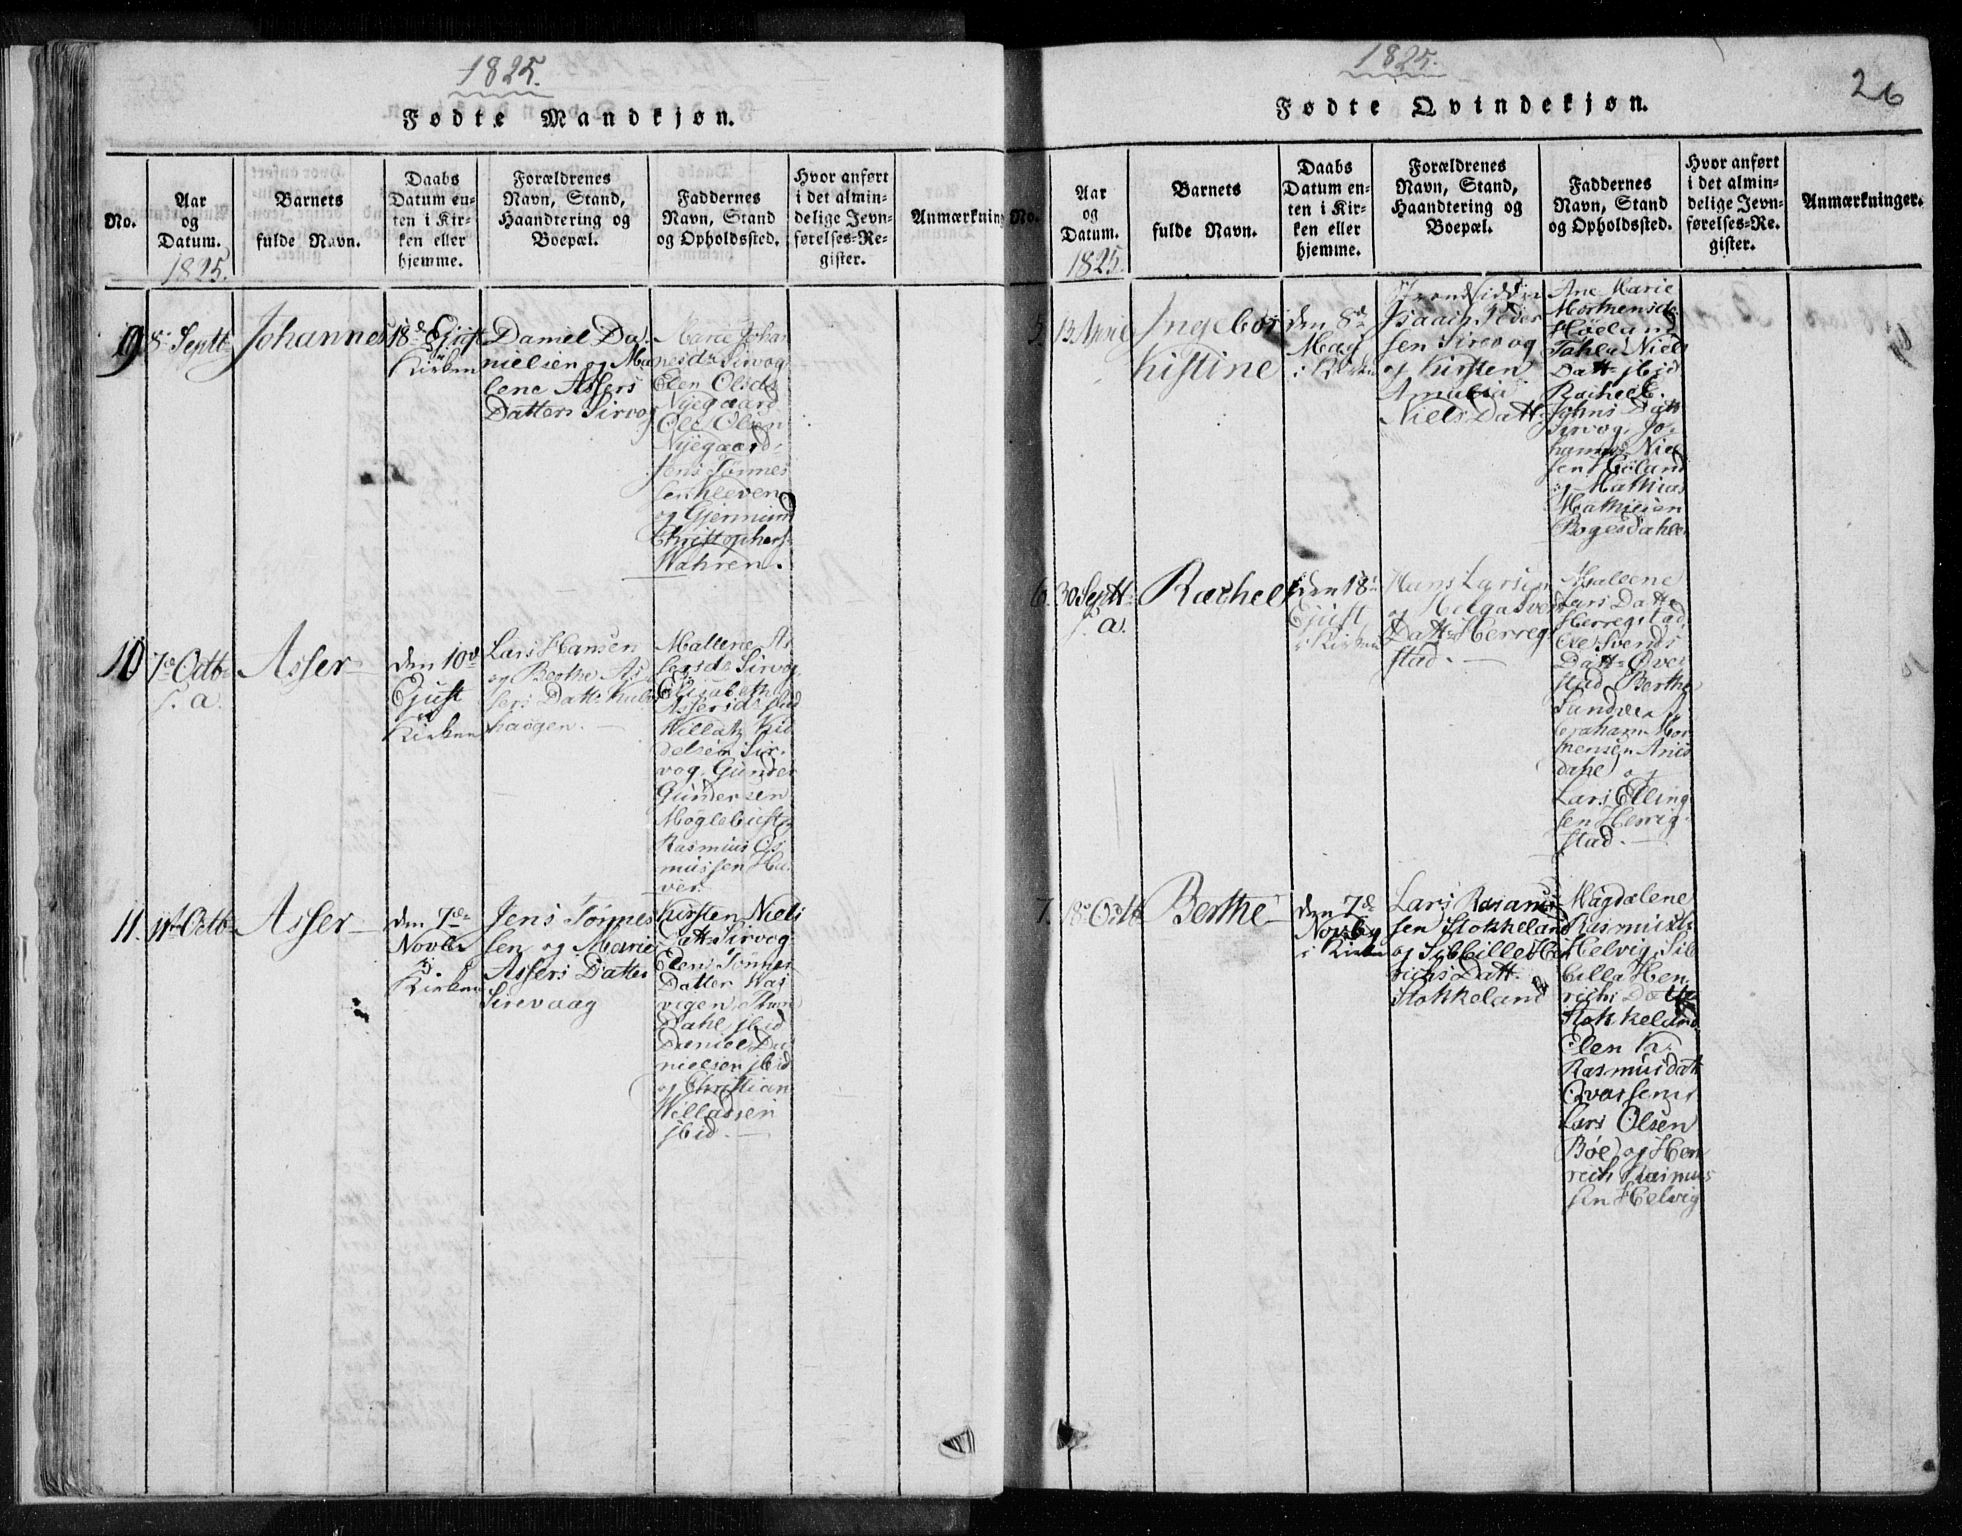 1825.
Fødte Mandkjøn.
No.
Aar
og
Datum.
1825.
Barnets
fulde Navn.
Daabs
Datum en-
ten i Kir-
ken eller
hjemme.
Forældrenes
Navn, Stand,
Haandtering og
Boepæl.
Faddernes
Navn, Stand
og Opholdssted.
Hvor anført
i det almin-
delige Jevn-
førelses-Re-
gister.
Anmærkning
9
8. Septt
Johannes
18de Ejust
i
Kirken
Daniel Da-
nielsen og Ma
lene Assers
Datter Sirvog
Marie Johan
nesdr Sirvog
Elen Olsdr
Nyegaard
Ole Olsen
Nyegaard,
Jens Tønnes
sen Kleven
og Gjermund
Christophers
Wahren.
10
7de Octb
s. a.
Asser
den 10de
Ejust
i
Kirken
Lars Hansen
og Berthe As
sers Datt.
haogen.
Mallene As
sersdr Sirvog
Elisabeth
Assersdr ibid
Willatz Kid
delsen Sir-
vog, Gunder
Gundersen
Møglebust
Rasmus Os
mussen Ha
ver.
11.
Octb
Asser
den 7de
Novbr
i
Kirken
Jens Tønnes
sen og Marie
Assers Datter
Sirevaag
Kirsten Niels
Datt. Sirvog
Elen Tønnes
Datter Was
vigen,
Dahl ibid
Daniel Da
nielsen ibid
og Christian
Willadsen
ibid.
1825.
26
Fødte Qvindekjøn.
No.
Aar
og
Datum.
1825.
Barnets
fulde Navn.
Daabs
Datum en-
ten i Kir-
ken eller
hjemme.
Forældrenes
Navn, Stand,
Haandtering og
Boepæl.
Faddernes
Navn, Stand
og Opholdssted.
Hvor anført
i det almin-
delige Jevn-
førelses-Re-
gister.
Anmærkninger.
5.
13 April
Ingebor
Kistine
den 8de
May
i Kirken
Strandsidder
Isaach Peder
sen Sirevog
og Kirsten
Amalia
Niels Datt.
Ane Marie
Morthensdr
Høeland
Tahla Niels
Datt. ibid
Rachel E.
Johns Datt
Sirvog, Jo-
hannes Niel
sen Høiland
og Mathias
Mathiesen
Bogesdahle
6.
30 Septt
s. a.
Rachel
den 18de
Ejust
i Kirken
Hans Larsen
og Helga Sven
Datt. Herreg
stad.
Mallene
Lars Datt.
Herregstad,
Ele Svends
Datt. Øver
stad, Berthe
Sundvor
Abraham Mor
tensen Aries
dahl og
Lars Elling
sen Herrig
stad.
7.
18de Octb
Berthe
den 7de
Novbr
i Kirken
Lars Rasmus
sen Stokkeland
og Sibbille Hen
richs Datt.
Stokkeland
Magdalene
Rasmusdr
Helvig, Sib
billa Hen
richs Datt.
Stokkeland
Elen K.
Rasmusdatt
Qvassem
Lars Olsen
Bøe og Hen
rich Rasmus
sen Helvig